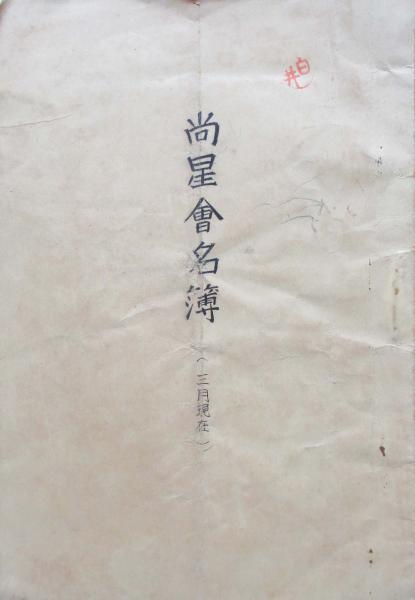 尚星會名簿
(三月現在)
白井